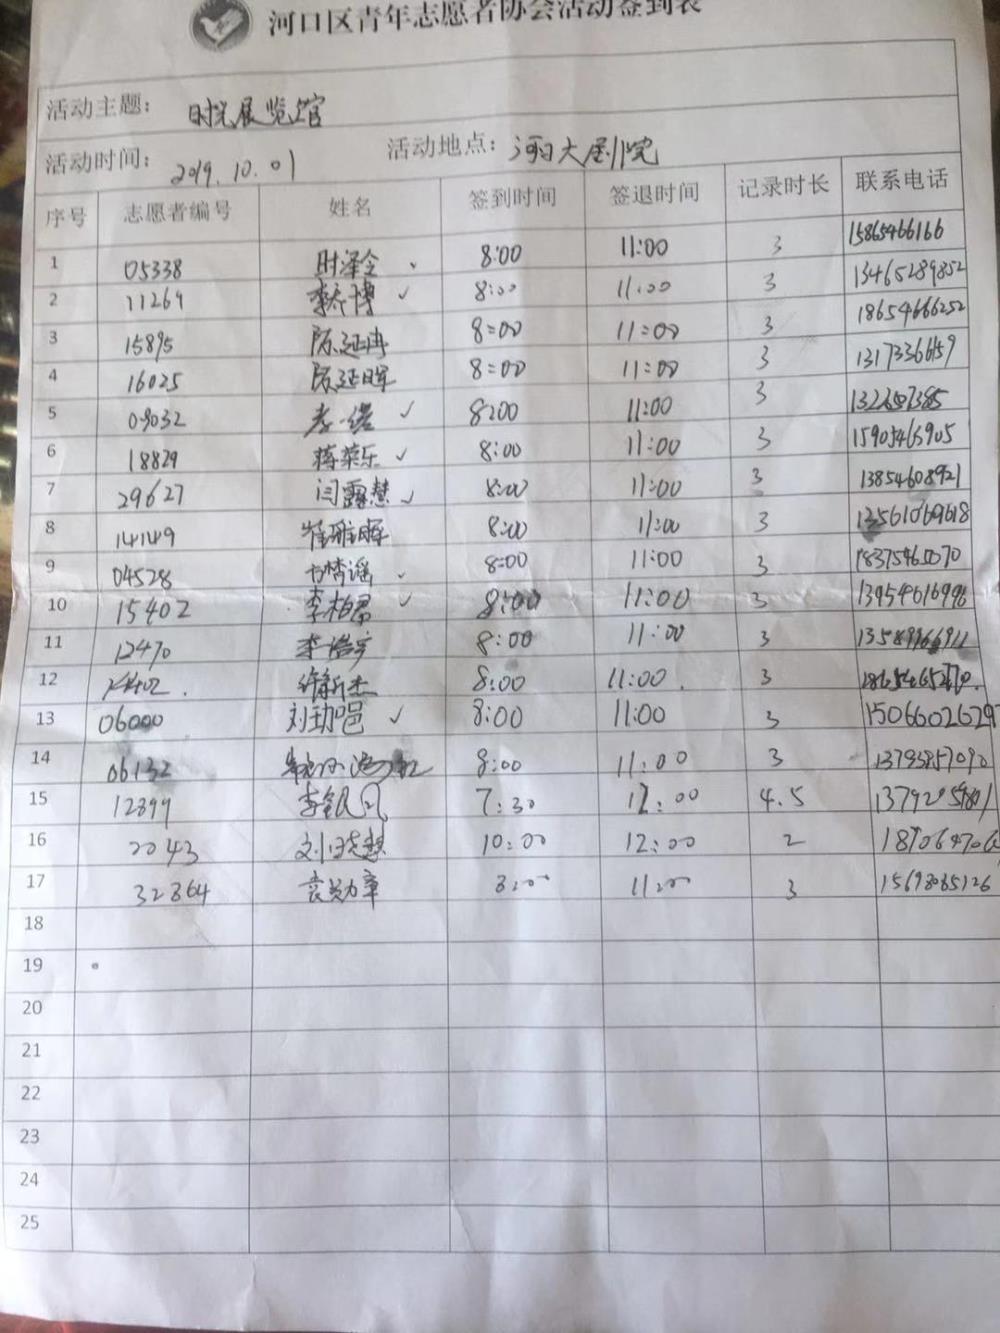 河口区青年志愿者协会活动签到表
活动主题: 时光展览馆
活动时间: 2019.10.01 活动地点: 河口大剧院
序号 志愿者编号 姓名 签到时间 签退时间 记录时长 联系电话
1 05338 8:00 11:00 3 15865466166
2 11269 李乔博 ✓ 8:00 11:00 3 13465289852
3 15895 陈延冉 8:00 11:00 3 18654666252
4 16025 陈延晖 8:00 11:00 3
5 09032 ✓ 8:00 11:00 3
6 18829 蒋荣乐 ✓ 8:00 11:00 3 15905463905
7 29627 闫露慧 ✓ 8:00 11:00 3 13854608921
8 14149 崔雅晖 8:00 11:00 3 13561069618
9 04528 8:00 11:00 3
10 15402 李柏君 ✓ 8:00 11:00 3 13954616998
11 12470 李浩宇 8:00 11:00 3
12 8:00 11:00 3
13 06000 ✓ 8:00 11:00 3 15066026297
14 06132 8:00 11:00 3
15 12899 李银凤 7:30 12:00 4.5
16 2043 刘晓慧 10:00 12:00 2
17 32864 袁勋章 8:00 11:00 3 15698085126
18
19
20
21
22
23
24
25